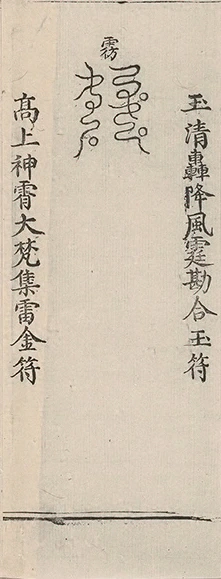 玉清轟降風霆勘合玉符
霧
髙上神霄大梵集雷金符